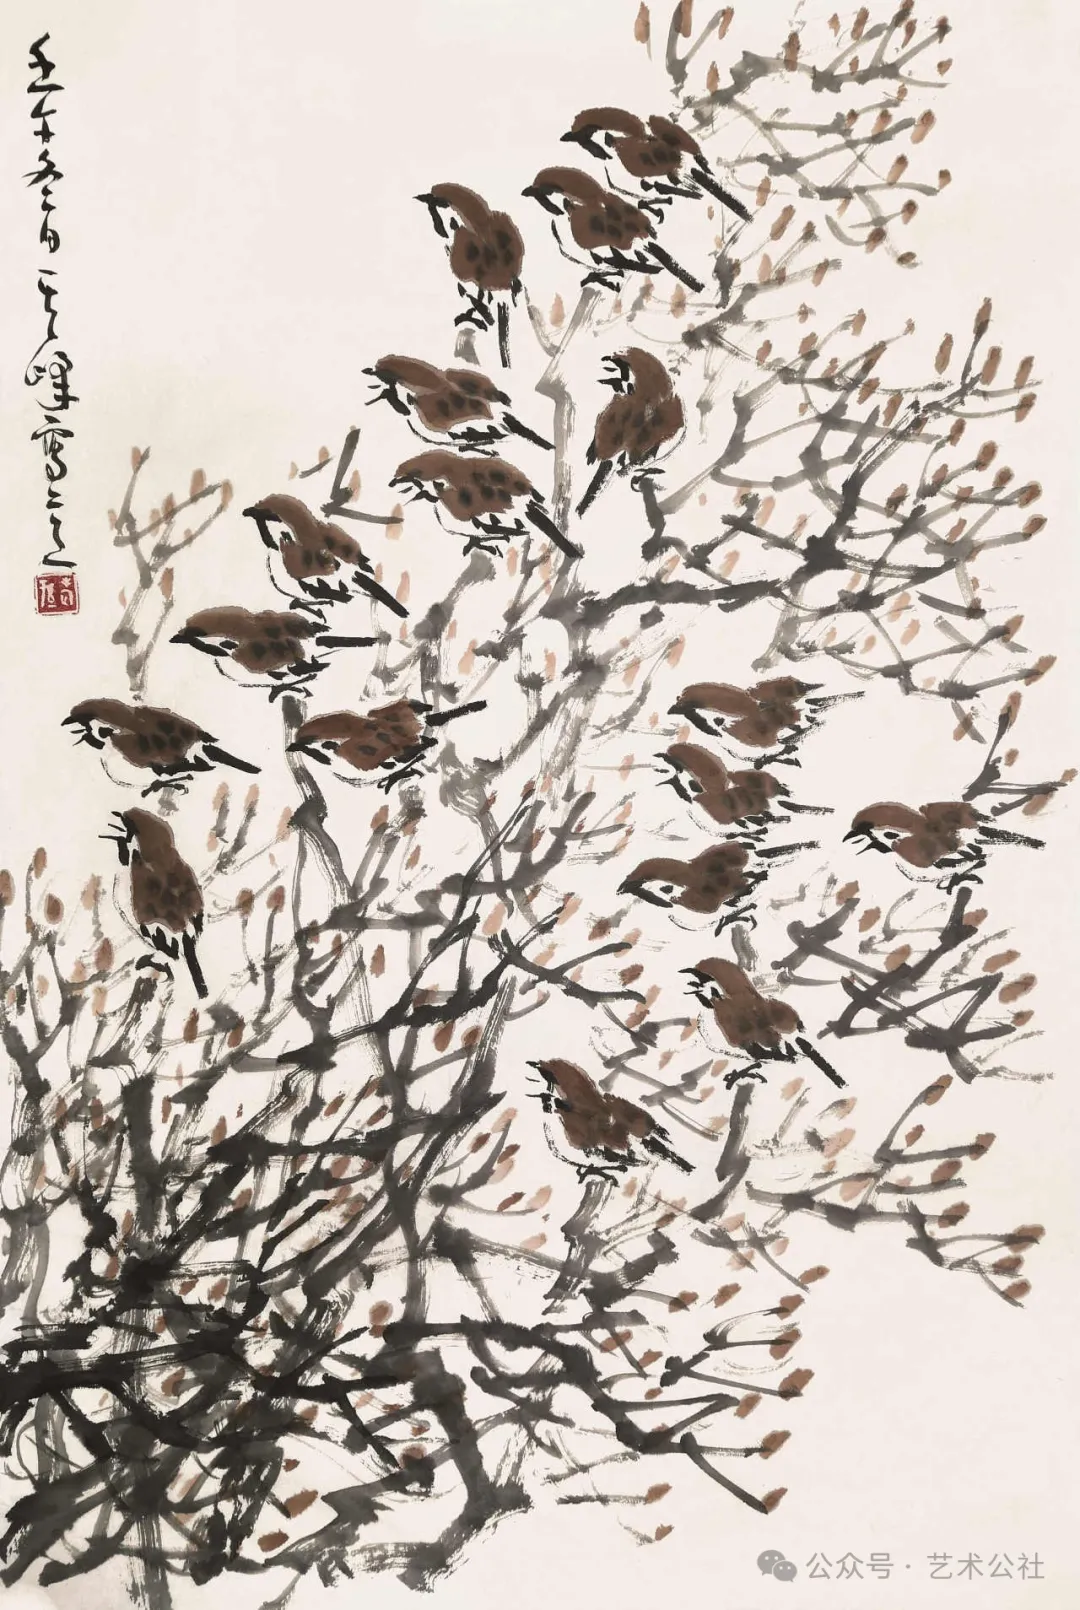 壬午冬日其峰写之
公众号 · 艺术公社